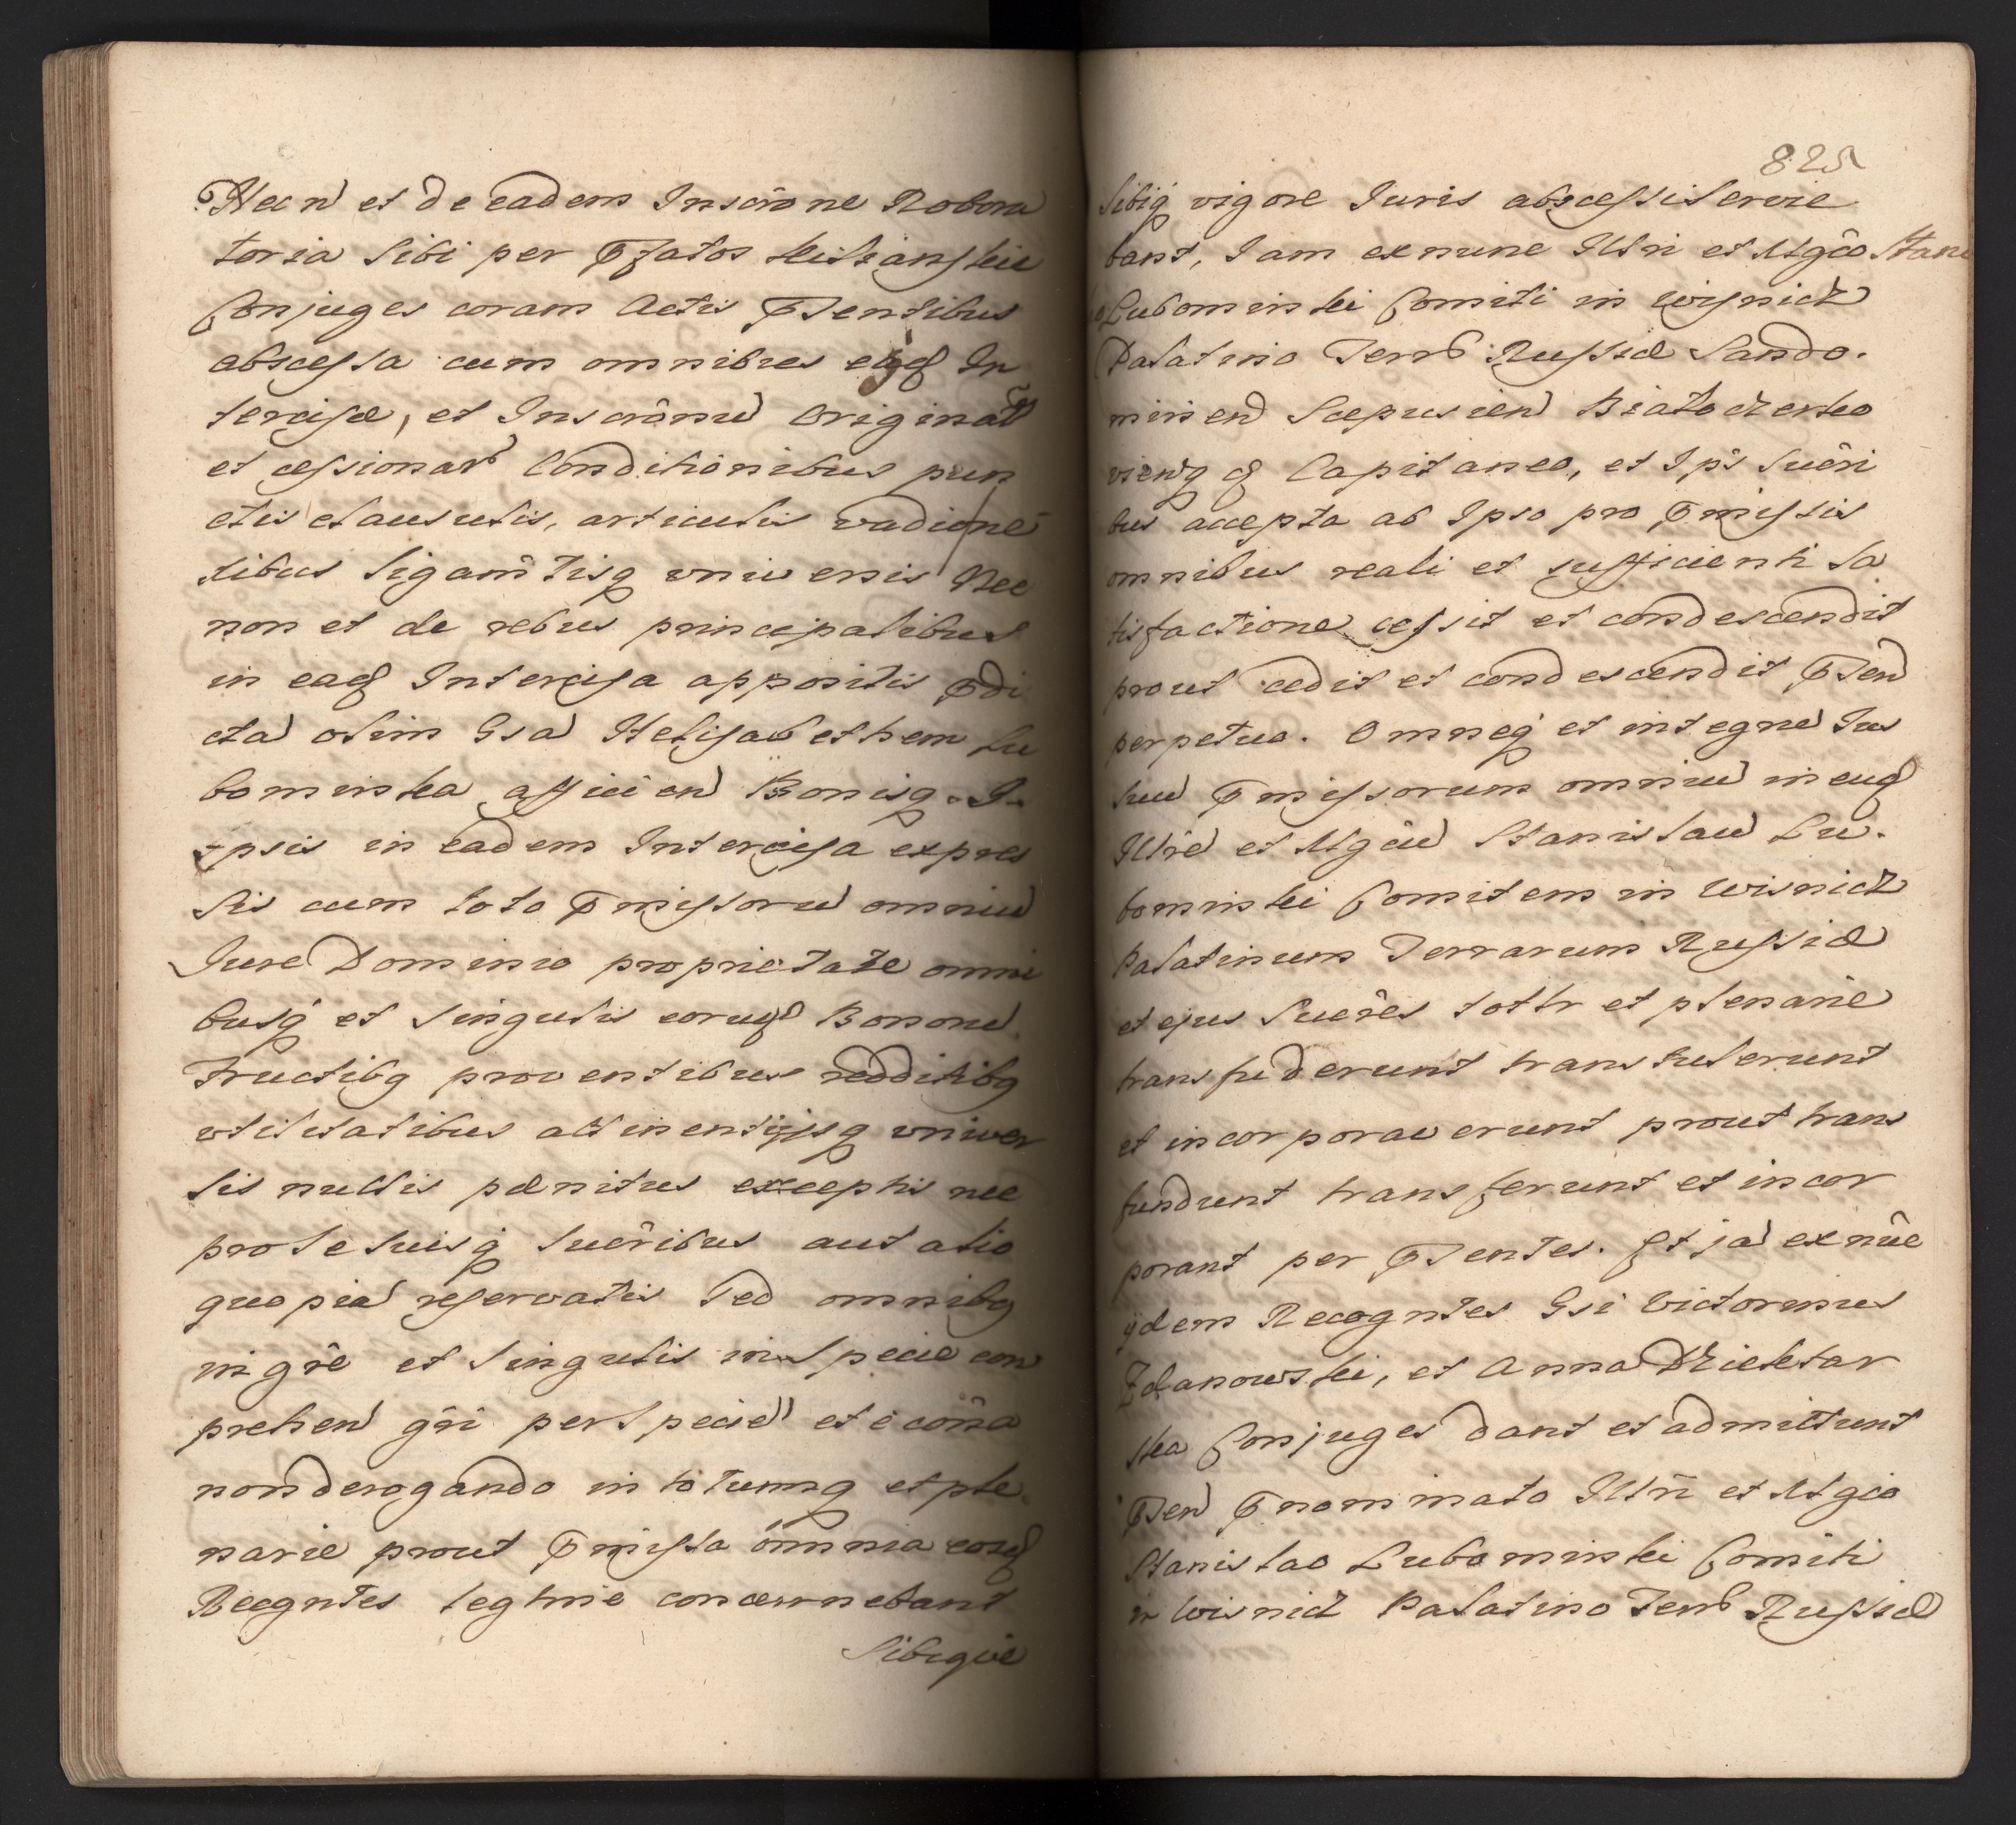 Necnō et de eadem Inscr̄one Robora
toria sibi per p̄fatos Kiliańskie
Conjuges coram Actis p̄sentibus
abscessa cum omnibus ejusd In
tercisæ, et Inscr̄onū Original
et cessionar Conditionibus pun
ctis clausulis, articulis vadio ne
xibus ligam̄tisq universis Nec
non et de rebus principalibus
in ead Intercisa appositis p̄di
ctā olim Gsā Helisabethem Lu
bominska afficien Bonisq. I.
ipsis in eadem Intercisa expres
sis cum toto p̄missorū omniū
Jure Dominio proprietate omni
busq et singulis eorund Bonorū
Fructibq proventibus redditibq
utilitatibus attinentijsq univer
sis nullis pænitus exceptis nec
pro se suisq suc̄ribus aut alio
quopiā reservatis sed omnibq
in gn̄e et singulis in specie com
prehen gn̄i per speciē et è con̄a
non derogando in totumq et ple
narie prout p̄missa omnia eosd
Recgntes legtime concernebant
Sibique
825
sibiq vigore Juris abscessi servie
bant, Iam ex nunc Illri et Mgco Stanis
lao Lubominski Comiti in Wisnicz
Palatino Terr Russiæ Sando.
mirien Scepusien Biatocerkie
vienq q Capitaneo, et Ips Suc̄ri
bus accepta ab Ipso pro p̄missis
omnibus reali et sufficienti sa
tisfactione cessit et condescendit
prout cedit et condescendit p̄sen
perpetuo. Omneq et integrū Jus
suū p̄missorum omniū in eund
Illrē et Mgcū Stanislaū Lu.
bominski Comitem in Wisnicz
Palatinum Terrarum Russiæ
et ejus Suc̄res tottr et plenariè
transfuderunt transtulerunt
et incorporaverunt prout trans
fundunt transferunt et incor
porant per p̄sentes. Et jā ex nūc
ijdem Recogntes Gsi Victorinus
Zdanowski, et Anna Dziektar
ska Conjuges dant et admittunt
p̄sen p̄nominato Illri et Mgco
Stanislao Lubominski Comiti
in Wisnicz Palatino Terr Russiæ